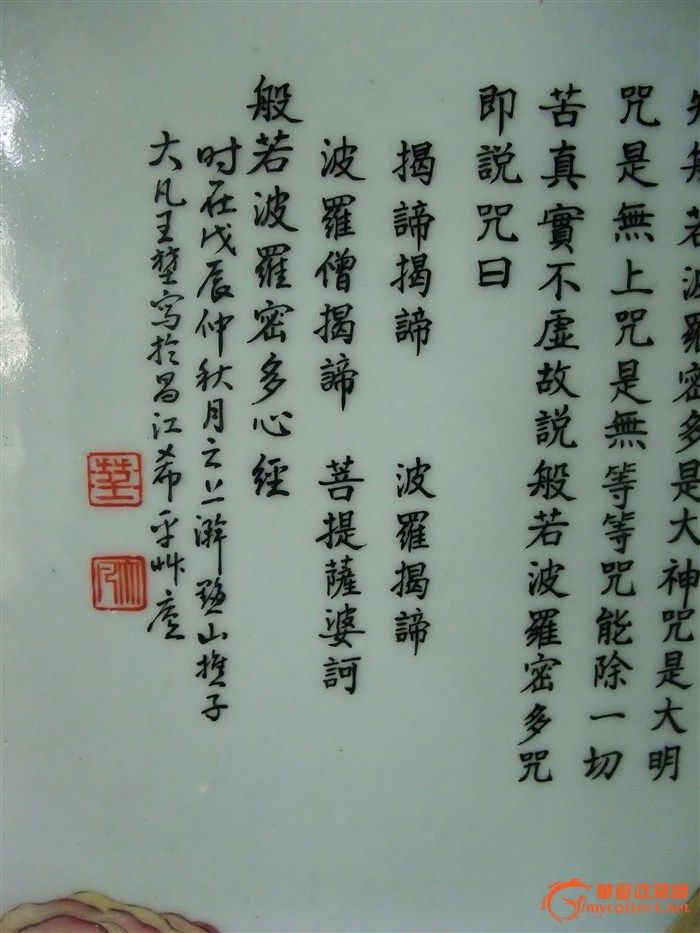 知般若波羅密多是大神咒是大明
咒是無上咒是無等等咒能除一切
苦真實不虛故說般若波羅密多咒
即說咒曰
揭諦揭諦 波羅揭諦
波羅僧揭諦 菩提薩婆訶
般若波羅密多心經
时在戊辰仲秋月之上澣黟山樵子
大凡王埜写於昌江希平艸庐
華夏收藏網
mycollect.net